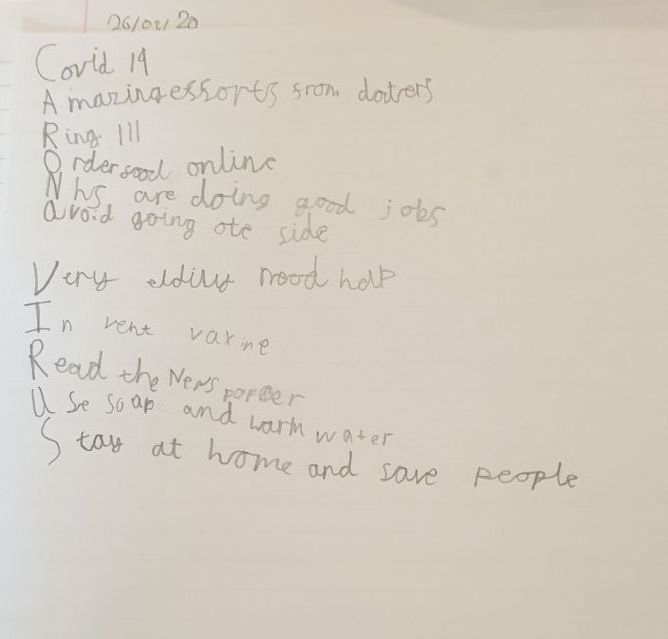 Covid 19
Amazing essorts srom doctrers
Ring 111
Order sood online
Nhs are doing good jobs
avoid going ote side
Very eldily nood help
In vent vaxine
Read the News popper
Use soap and warm water
Stay at home and save people